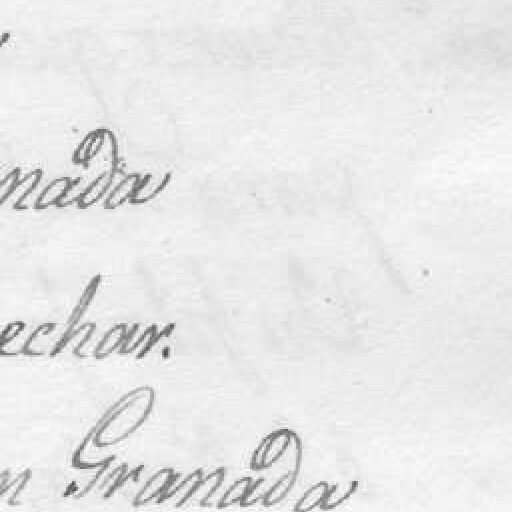 nada
echar.
n Granada